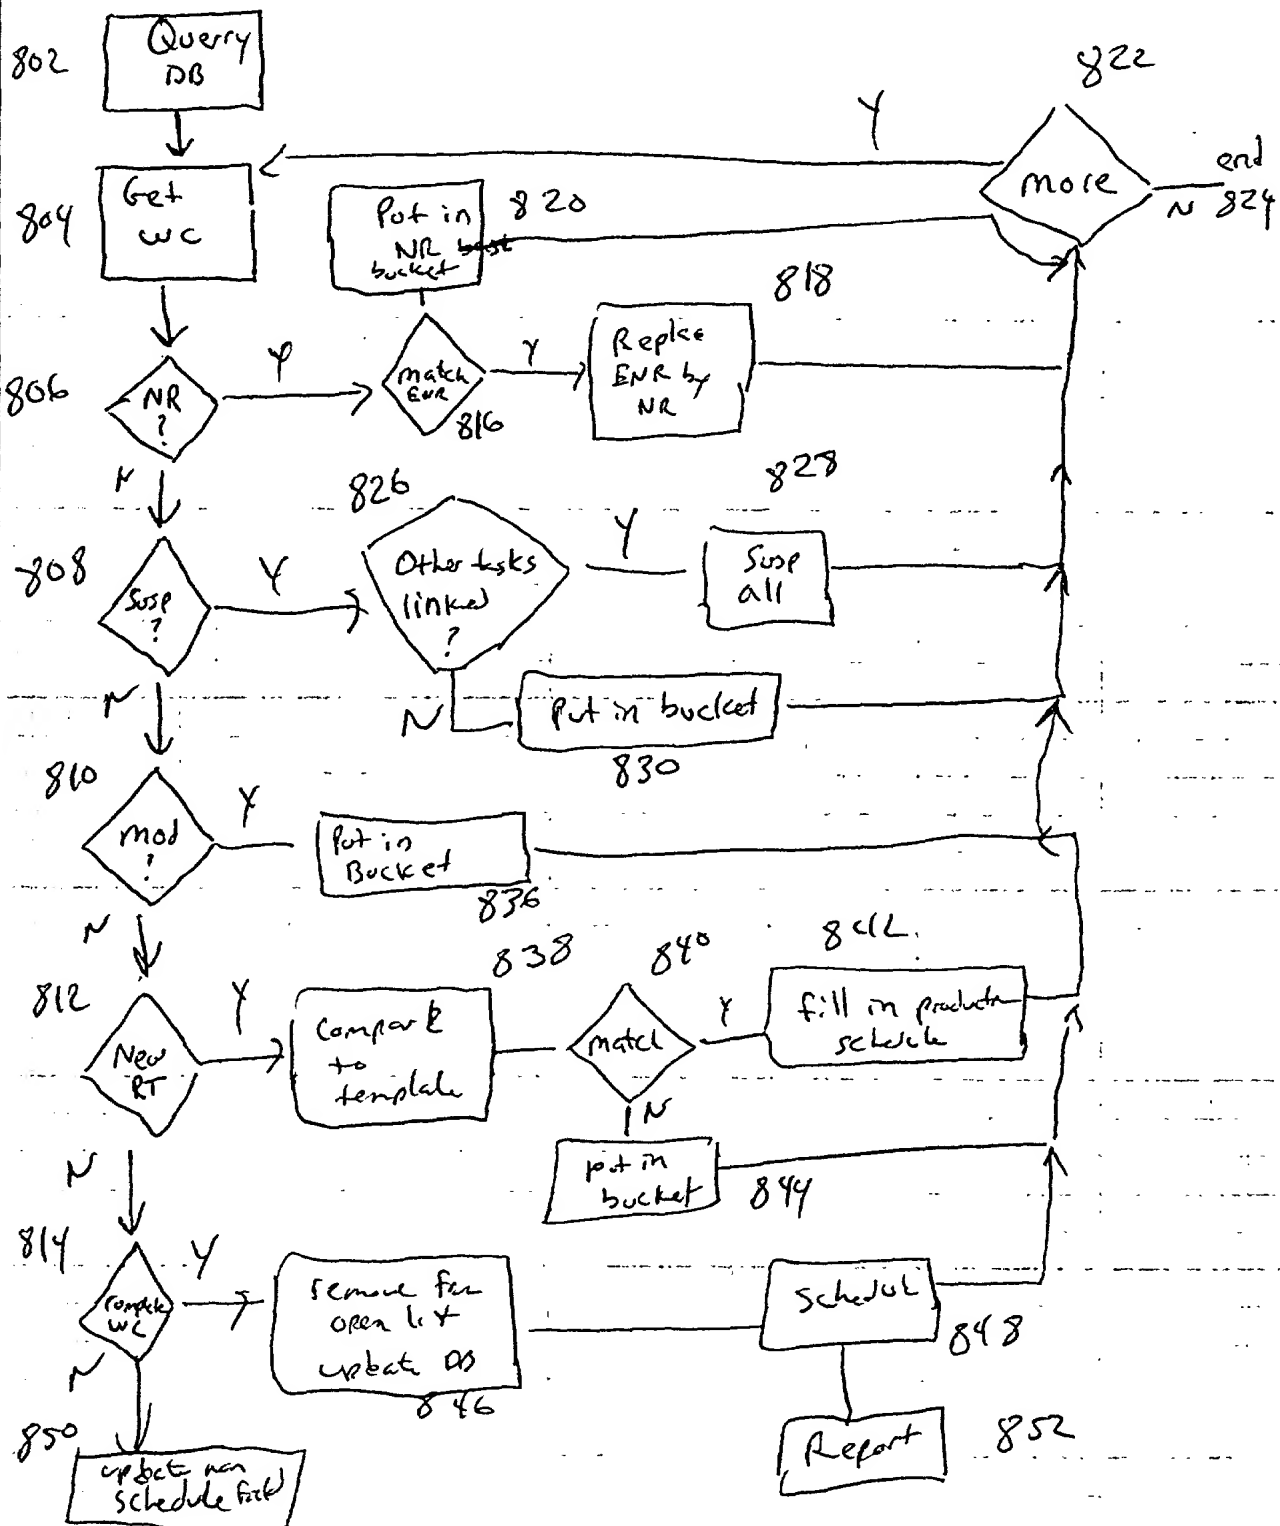 802
Querry
DB
822
Y
804
Get
WC
Put in
NR
bucket
820
more
N
end
824
818
806
NR
?
Y
match
ENR
816
Y
Replce
ENR by
NR
N
826
828
808
Susp
?
Y
Other tasks
linked
?
Y
Susp
all
N
N
Put in bucket
830
810
mod
?
Y
Put in
Bucket
836
N
838
840
842
812
New
RT
Y
Compare
to
template
match
Y
fill in
schedule
N
N
put in
bucket
844
814
complete
WC
Y
remove
open list
update DB
846
Schedul
848
N
850
update non
schedule field
Report
852